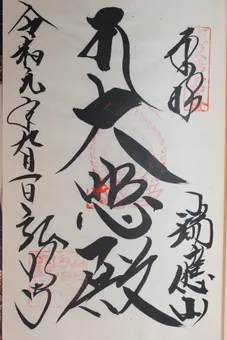 奉拝
瑞應山
大悲殿
令和元年九月一日
弘明寺